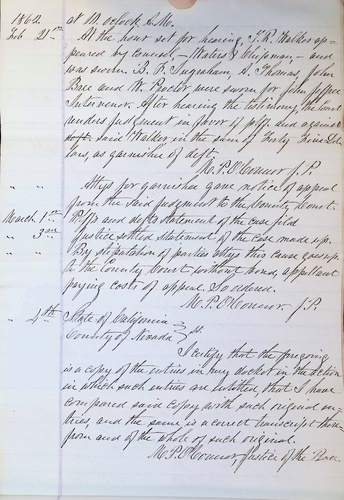 1862 at M oclock A.M.
Feb 21st At the hour set for hearing, T. R. Walker ap-
peared by counsel - Waters & Chipman - and
was sworn. B. F. Ingraham, A. Thomas, John
Bree and W. Proctor were sworn for John
Intervenor. After hearing the testimony, the Court
renders judgment in favor of plff and against
said Walker in the sum of Forty Nine Dol-
lars, as garnishee of deft.
M. P. O'Connor J. P.
" " Attys for garnishee gave notice of appeal
from the said judgment to the County Court.
March 1st Plffs and defts statement of the case filed
" 3rd Justice settled statement of the case made up.
" " By stipulation of parties attys this cause goes up
to the County Court without bond, appellant
paying costs of appeal. So ordered.
M. P. O'Connor J. P.
" 4th State of California
County of Nevada } ss.
I certify that the foregoing
is a copy of the entries in my docket in the action
in which such entries are entitled, that I have
compared said copy with such original en-
tries, and the same is a correct transcript there-
from and of the whole of such original.
M. P. O'Connor, Justice of the Peace